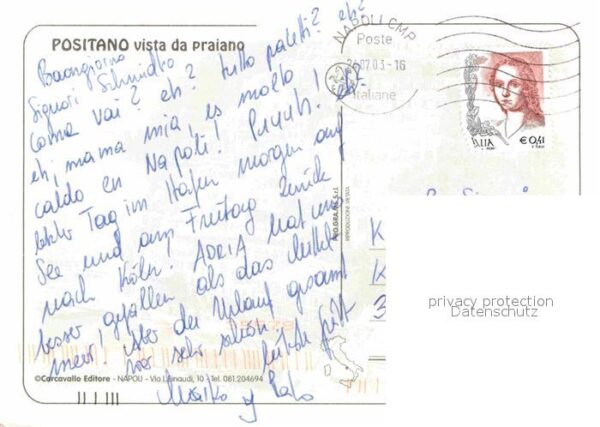 POSITANO vista da praiano
Buongiorno
Signori Schmidtke
Coma vai? eh? tutto paletti? eh?
eh, mama mia, es molto
caldo en Napoli! Puuuh! eh-
letzter Tag im Hafen morgen auf
See und am Freitag zurück
nach Köln! ADRIA hat uns
besser gefallen als das Mittel-
meer! Aber der Urlaub gesamt
war sehr schön!
y
NAPOLI CMP
Poste
07.03-16
Italiane
ITALIA
€ 0,41
K
K
3
privacy protection
Datenschutz
©Carcavallo Editore - NAPOLI - Via Lepnaudi, 10 - Tel. 081.204694